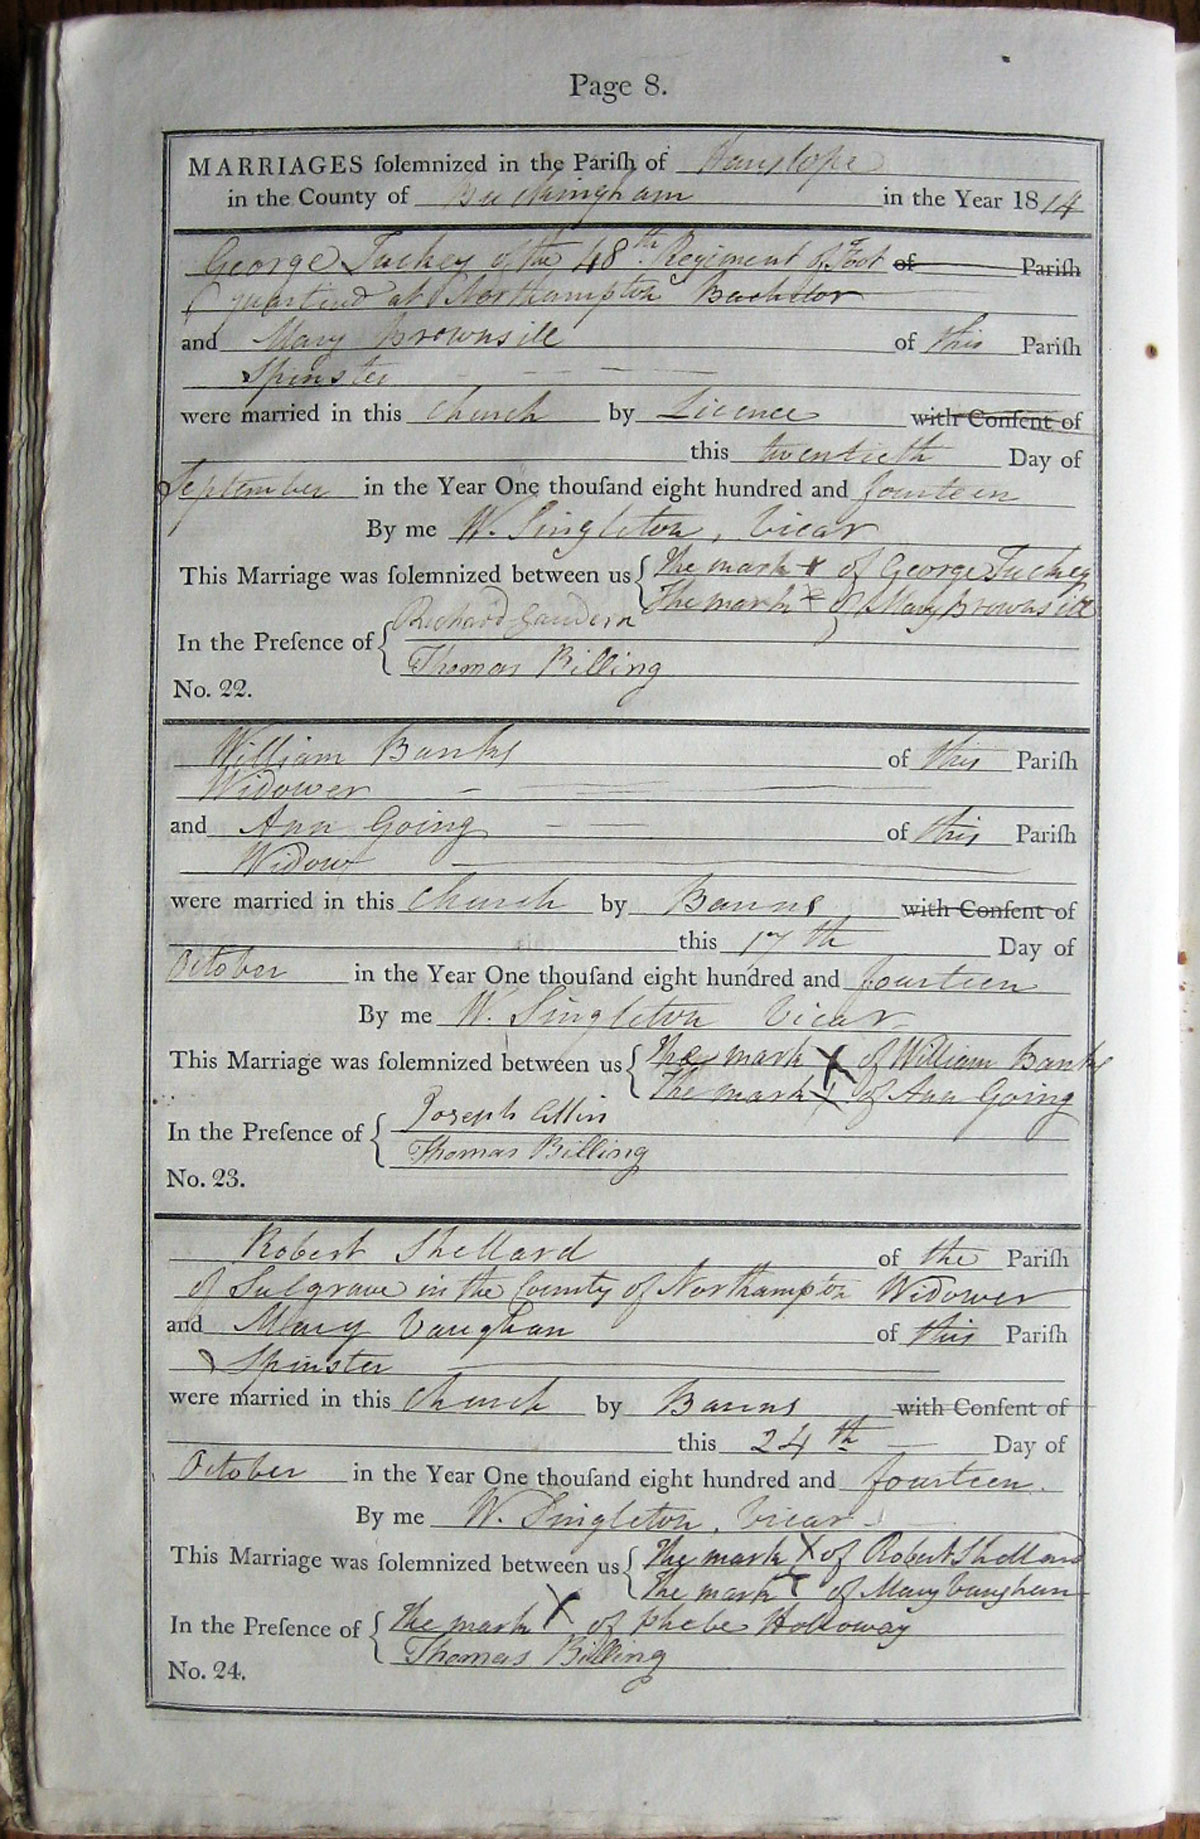 Page 8.
MARRIAGES ſolemnized in the Pariſh of Hanslope
in the County of Buckingham in the Year 1814
George Tuckey of the 48th Regiment of Foot of Pariſh
quartered at Northampton Bachelor
and Mary Brownsill of this Pariſh
Spinster
were married in this Church by Licence with Conſent of
this twentieth Day of
September in the Year One thouſand eight hundred and fourteen
By me W. Singleton, Vicar
This Marriage was ſolemnized between us { The mark + of George Tuckey
The mark x of Mary Brownsill
In the Preſence of { Richard
Thomas Billing
No. 22.
William Banks of this Pariſh
Widower
and Ann Going of this Pariſh
Widow
were married in this Church by Banns with Conſent of
this 17th Day of
October in the Year One thouſand eight hundred and fourteen
By me W. Singleton Vicar
This Marriage was ſolemnized between us { The mark X of William Banks
The mark X of Ann Going
In the Preſence of { Joseph
Thomas Billing
No. 23.
Robert Shellard of the Pariſh
of Sulgrave in the County of Northampton Widower
and Mary Vaughan of this Pariſh
Spinster
were married in this Church by Banns with Conſent of
this 24th Day of
October in the Year One thouſand eight hundred and fourteen.
By me W. Singleton, Vicar
This Marriage was ſolemnized between us { The mark X of Robert Shellard
The mark X of Mary Vaughan
In the Preſence of { The mark X of Phebe Holloway
Thomas Billing
No. 24.